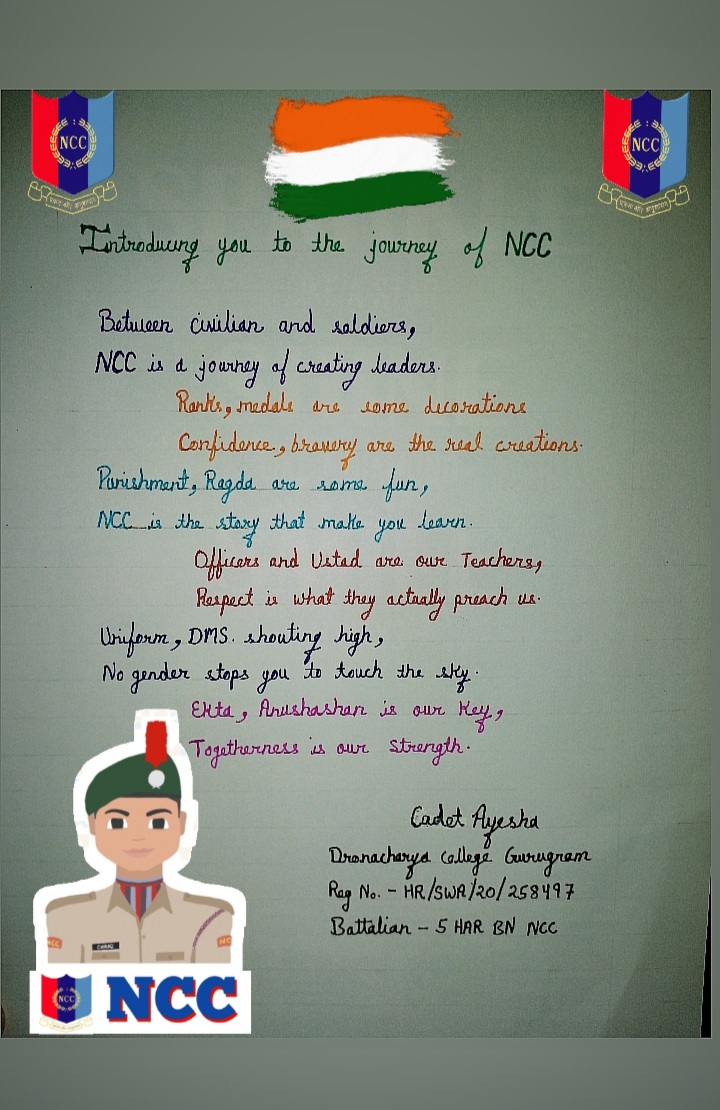 NCC
NCC
एकता और अनुशासन
एकता और अनुशासन
Introducing you to the journey of NCC
Between civilian and soldiers,
NCC is a journey of creating leaders.
Ranks, medals are some decorations
Confidence, bravery are the real creations.
Punishment, Ragda are some fun,
NCC is the story that make you learn.
Officers and Ustad are our Teachers,
Respect is what they actually preach us.
Uniform, DMS. shouting high,
No gender stops you to touch the sky.
Ekta, Anushashan is our Key,
Togetherness is our Strength.
Cadet Ayesha
Dronacharya College Gurugram
Reg No. - HR/SWA/20/258497
Battalian - 5 HAR BN NCC
NCC
NCC
NCC
NCC